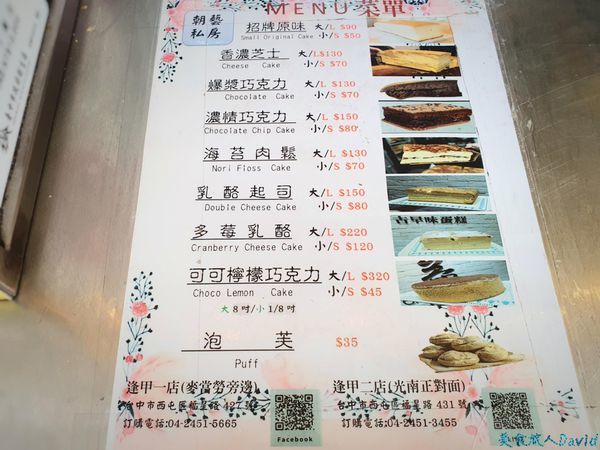 MENU 菜單
朝藝
私房
招牌原味 大/L $90
Small Original Cake 小/S $50
香濃芝士 大/L $130
Cheese Cake 小/S $70
爆漿巧克力 大/L $130
Chocolate Cake 小/S $70
濃情巧克力 大/L $150
Chocolate Chip Cake 小/S $80
海苔肉鬆 大/L $130
Nori Floss Cake 小/S $70
乳酪起司 大/L $150
Double Cheese Cake 小/S $80
古早味蛋糕
多莓乳酪 大/L $220
Cranberry Cheese Cake 小/S $120
可可檸檬巧克力 大/L $320
Choco Lemon Cake 小/S $45
大 8 吋/小 1/8 吋
泡芙 $35
Puff
逢甲一店(麥當勞旁邊)
台中市西屯區福星路 427號
訂購電話:04-2451-5665
Facebook
逢甲二店(光南正對面)
台中市西屯區福星路 431 號
訂購電話:04-2451-3455
美食旅人David